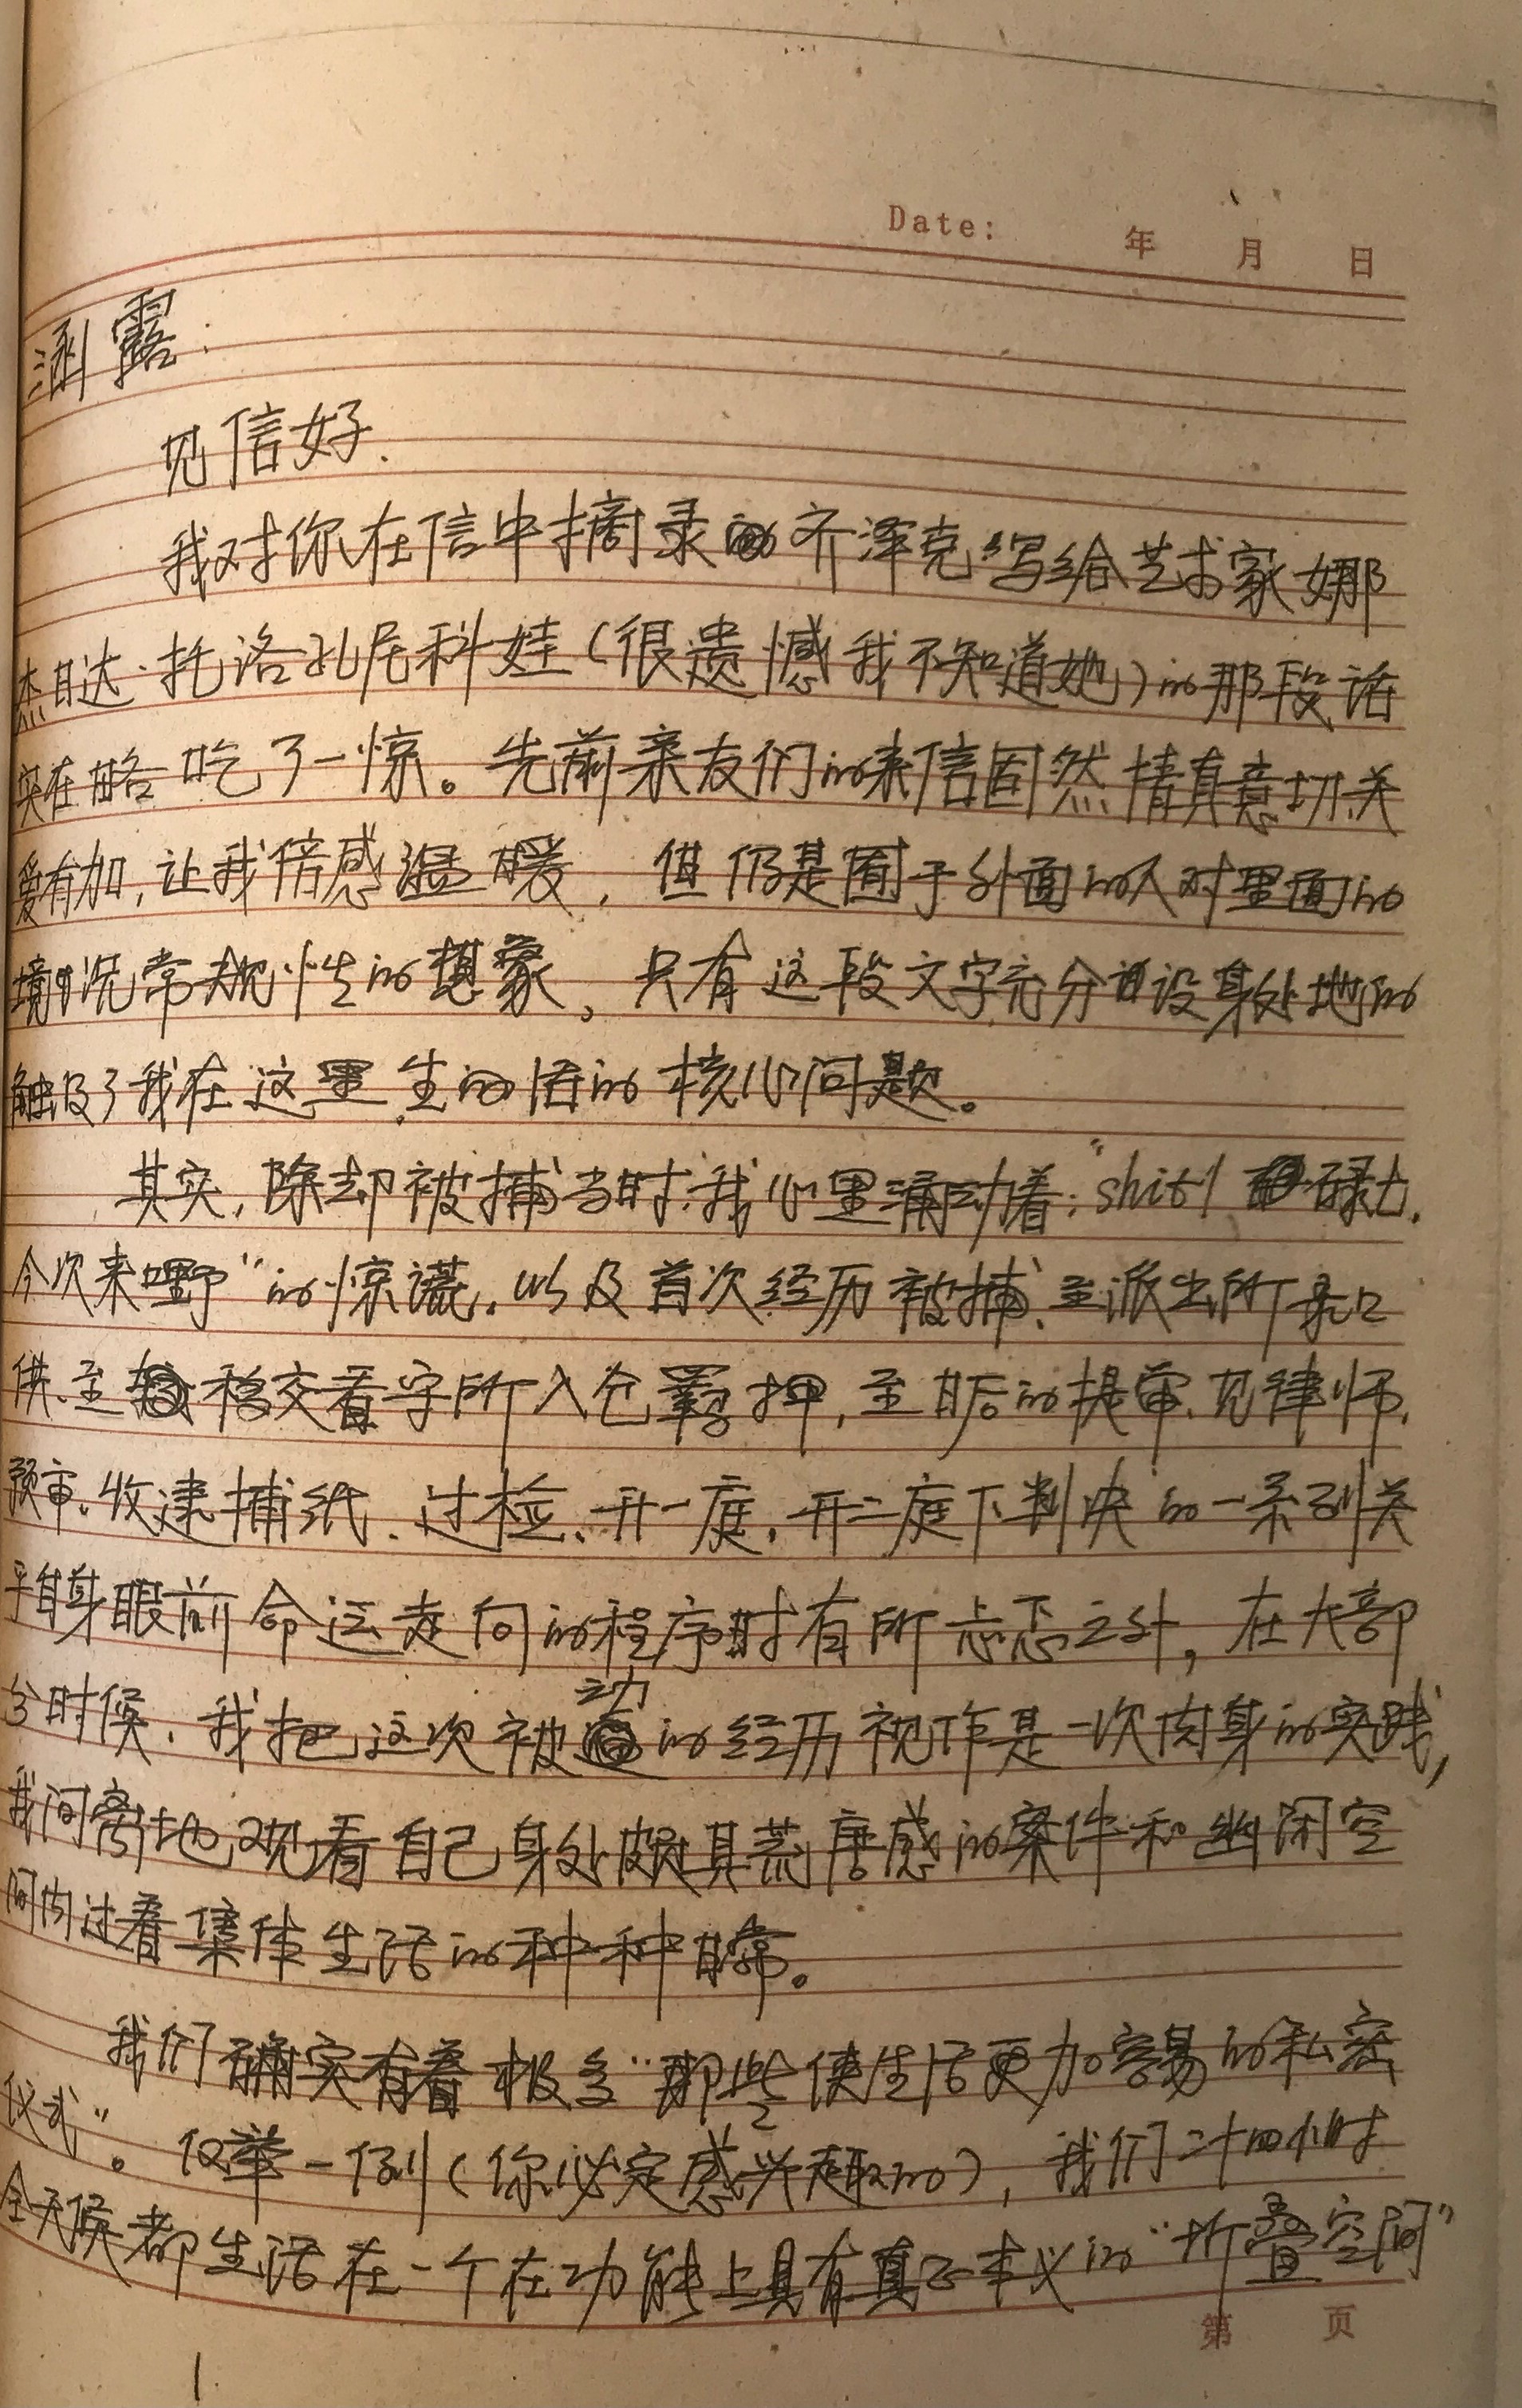 Date: 年 月 日
涵露:
见信好.
我对你在信中摘录的齐泽克写给艺术家娜
杰日达·托洛孔尼科娃(很遗憾我不知道她)的那段话
实在略吃了一惊。先前亲友们的来信固然情真意切,关
爱有加,让我倍感温暖,但仍是囿于外面的人对里面的
境况常规性的想象,只有这段文字充分设身处地的
触及了我在这里生活的核心问题。
其实,除却被捕当时,我心里涌动着:"shit!碌尢.
今次来嘢"的惊谎.以及首次经历被捕、至派出所录口
供、至移交看守所入仓羁押,至其后的提审、见律师、
预审、收逮捕纸、过检、开一庭、开二庭下判决的一系列关
乎自身眼前命运走向的程序时有所忐忑之外,在大部
分时候,我把这次被动的经历视作是一次肉身的实践,
我间离地观看自己身处颇具荒唐感的案件和幽闭空
间内过着集体生活的种种日常。
我们确实有着极多"那些使生活更加容易的私密
仪式"。仅举一例(你必定感兴趣的),我们二十四小时
全天候都生活在一个在功能上具有真正本义的"折叠空间"
第 页
1